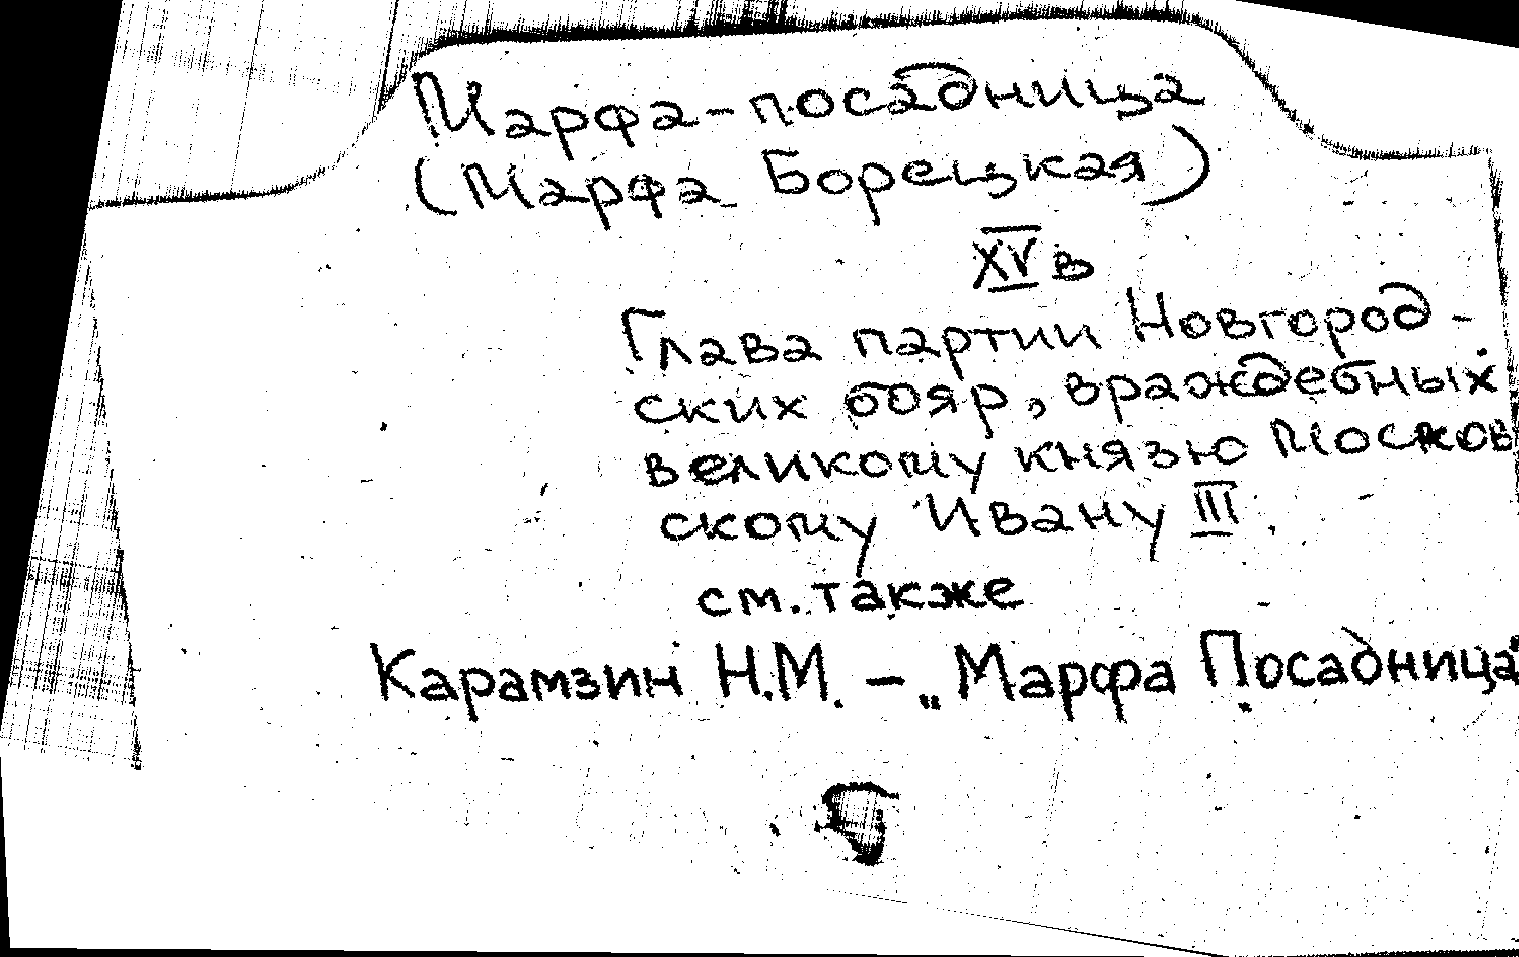 Марфа-посадница
(Марфа Борецкая)
XV в
Глава партии Новгород-
ских бояр, враждебных
великому князю Москов
скому Ивану III.
см. также
Карамзин Н.М. – „Марфа Посадница"